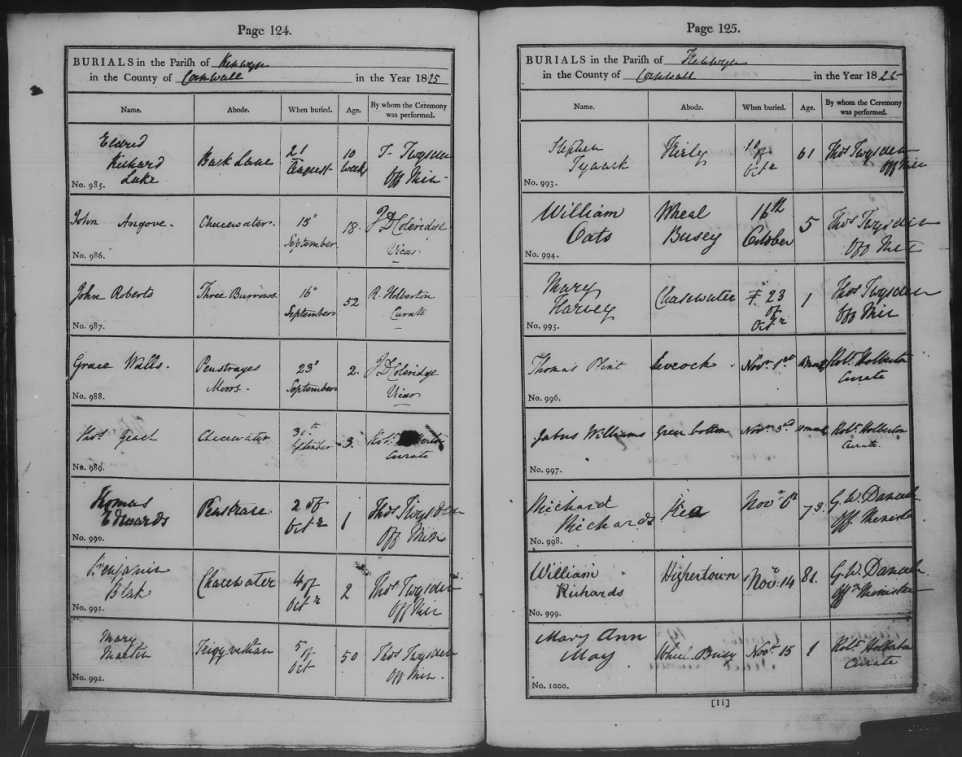 Page 124.
BURIALS in the Parish of Kenwyn
in the County of Cornwall in the Year 1825
Name. Abode. When buried. Age. By whom the Ceremony was performed.
Richard
Luke Back Lane 21 August 10 weeks T. Twysden Off Min
No. 985.
John Angove. Chacewater. 15 September 18. J D Coleridge Vicar
No. 986.
John Roberts Three Burrows 16 September 52 R. Holberton Curate
No. 987.
Grace Walls. Penstrayes Moors. 23d September 2. J D Coleridge Vicar
No. 988.
Thos Geach Chacewater September 3. Robt Curate
No. 989.
Thomas
Edwards 2 of Octr 1 Thos Twysden Off Min
No. 990.
Benjamin
Blake Chacewater 4 of Octr 2 Thos Twysden Off Min
No. 991.
Mary
Martin 5 of Oct 50 Thos Twysden Off Min.
No. 992.
Page 125.
BURIALS in the Parish of Kenwyn
in the County of Cornwall in the Year 1825
Name. Abode. When buried. Age. By whom the Ceremony was performed.
Stephen
of Octr 61 Thos Twysden Off Min
No. 993.
William
Oats Wheal Busey 16th October 5 Thos Twysden Off Min
No. 994.
Mary
Harvey Chasewater 23 of Octr 1 Thos Twysden Off Min
No. 995.
Thomas Novr 1st Robt Holberton Curate
No. 996.
Jabus Williams Green bottom Novr 3d Robt Holberton Curate
No. 997.
Richard
Richards Kea Novr 6th 73. G. W. Off Minister
No. 998.
William
Richards Highertown Novr 14 81. G. W. Offg Minister
No. 999.
Mary Ann
May Wheal Busy Novr 15 1 Robt Holberton Curate
No. 1000.
[11]